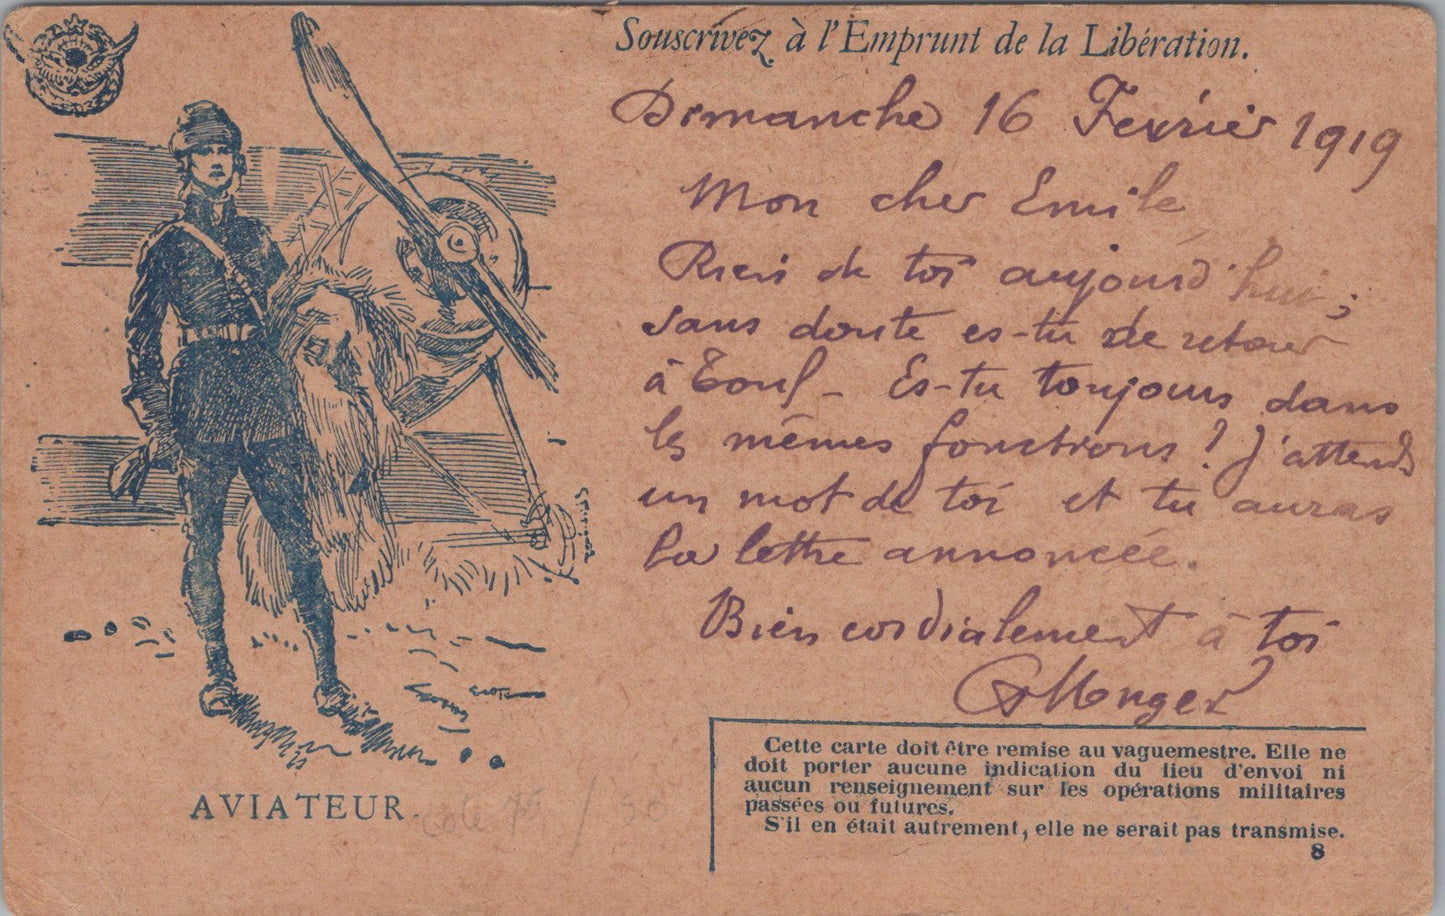 Souscrivez à l'Emprunt de la Libération.
Dimanche 16 Février 1919
Mon cher Emile
Rien de toi aujourd'hui;
sans doute es-tu de retour
à Toul - Es-tu toujours dans
les mêmes fonctions? J'attends
un mot de toi et tu auras
la lettre annoncée.
Bien cordialement à toi
AVIATEUR
Cette carte doit être remise au vaguemestre. Elle ne
doit porter aucune indication du lieu d'envoi ni
aucun renseignement sur les opérations militaires
passées ou futures.
S'il en était autrement, elle ne serait pas transmise.
8